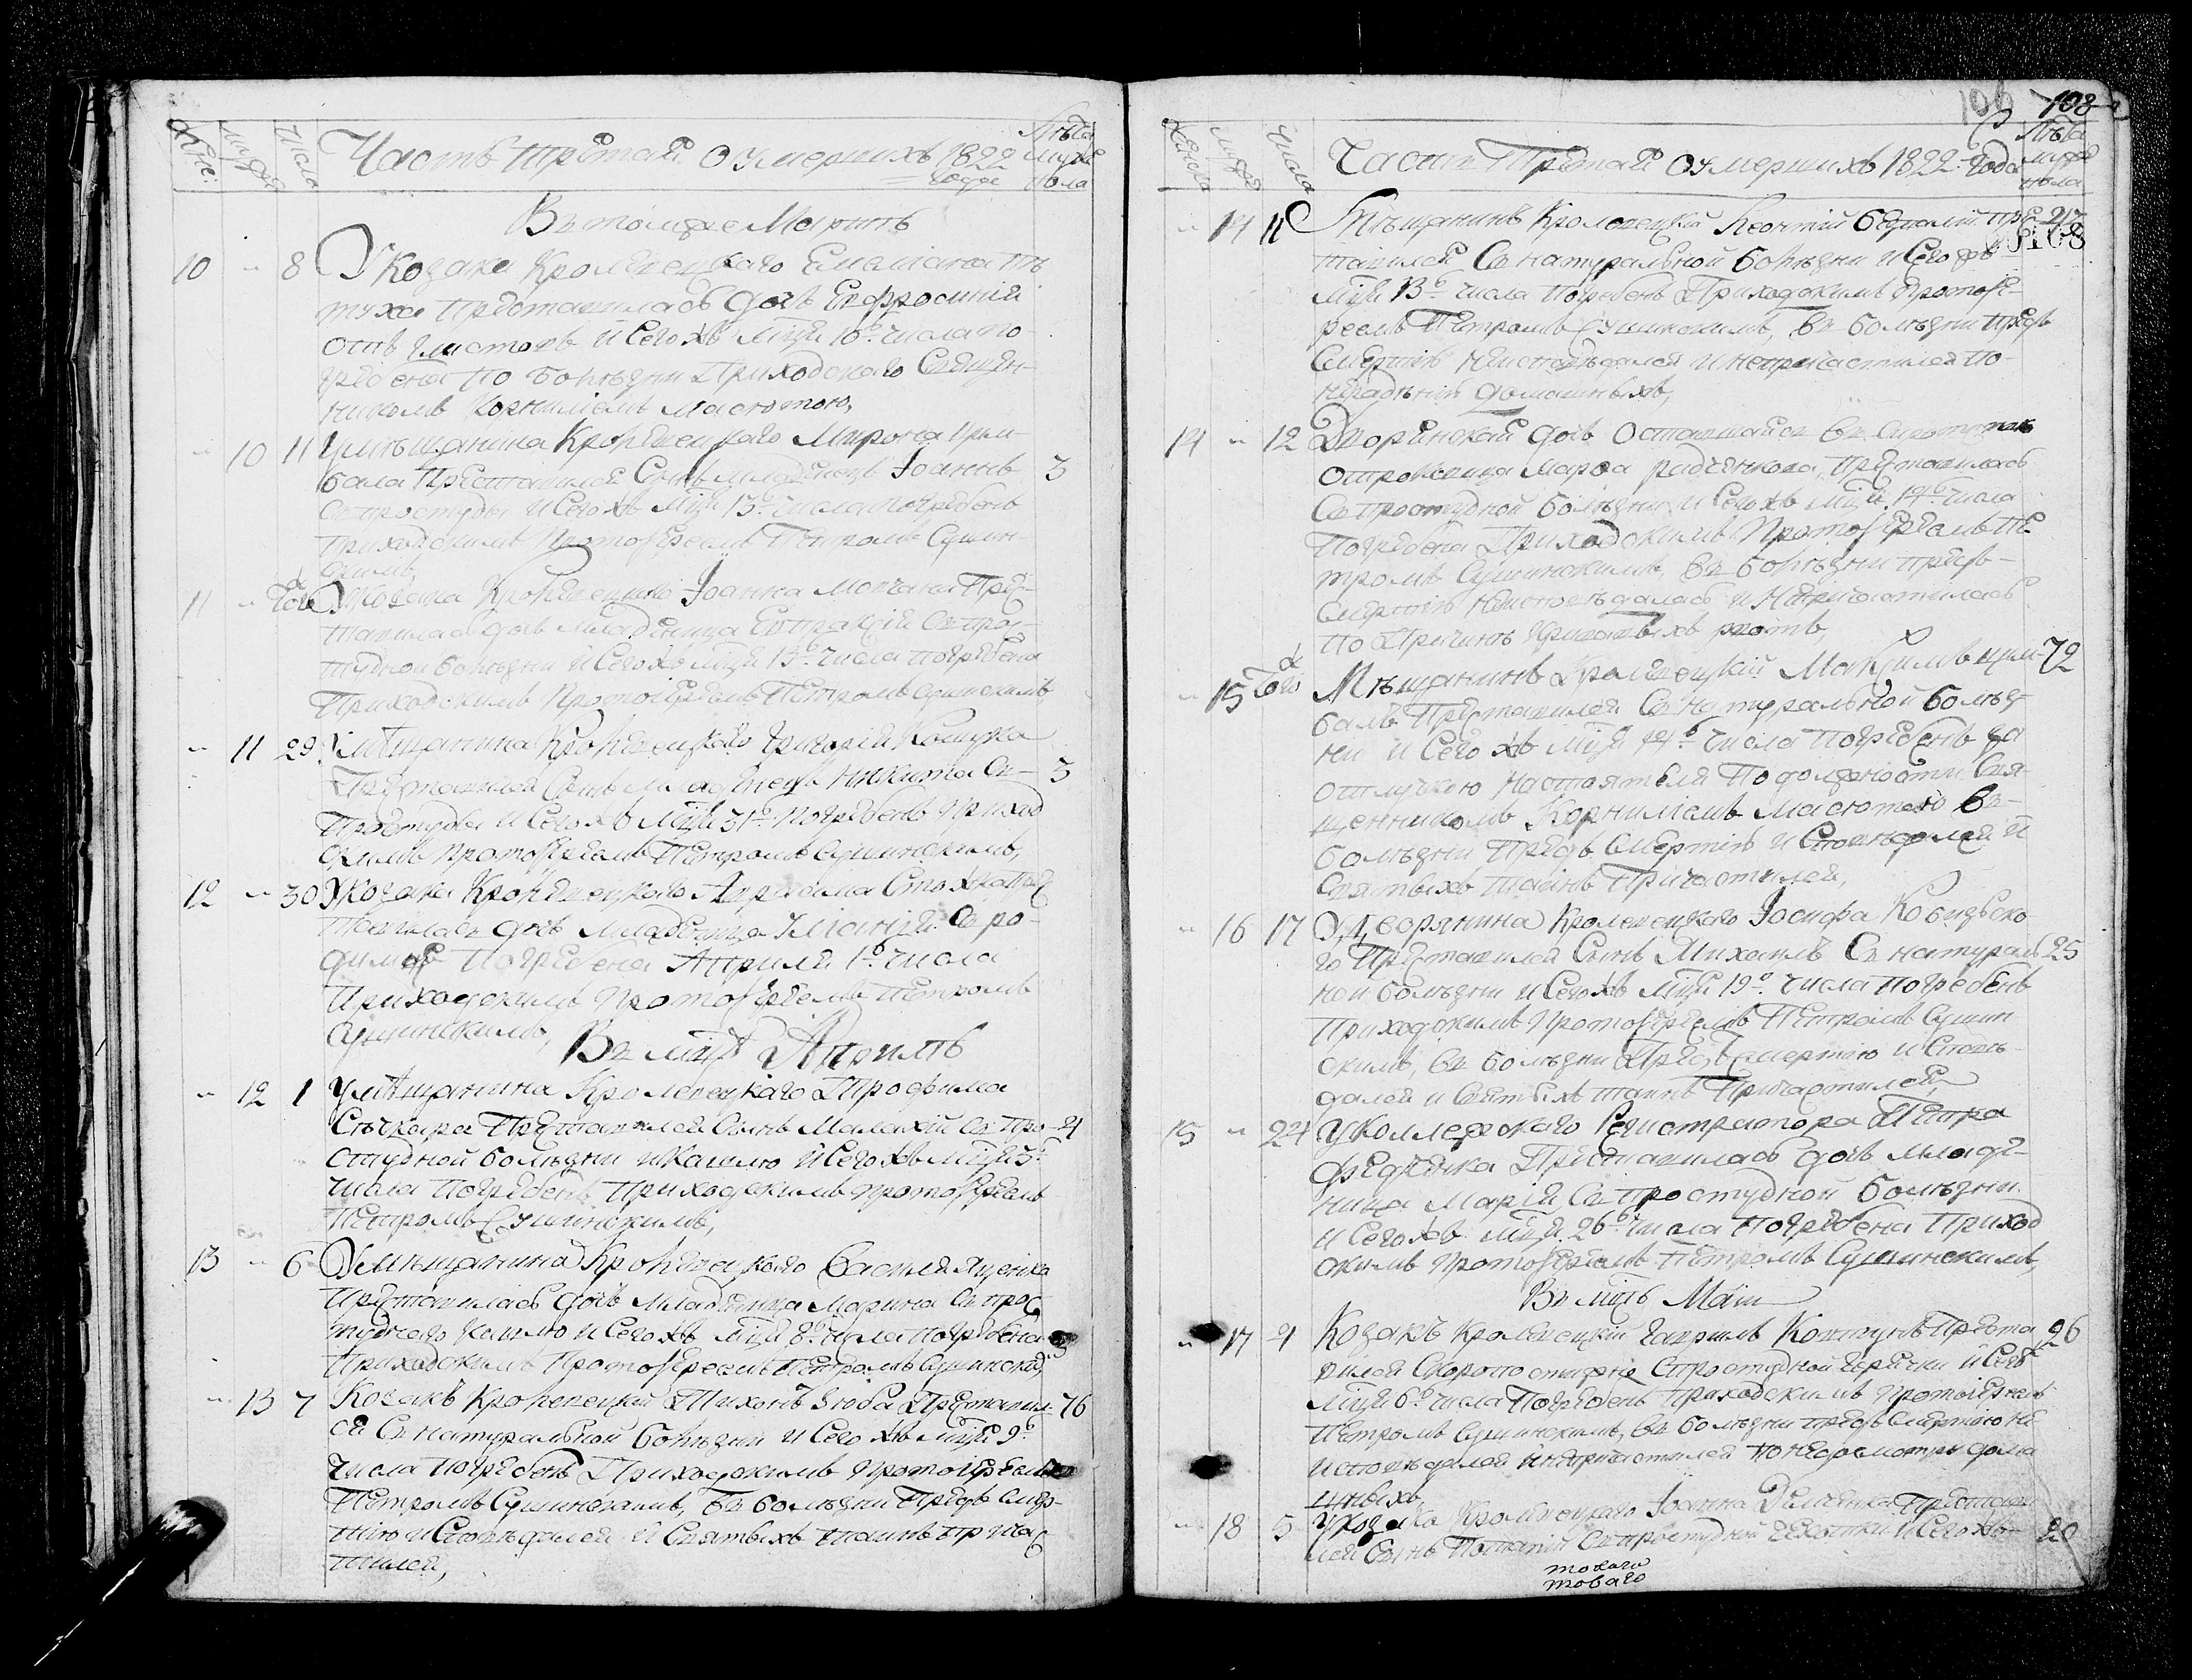 Женс:
Мужес
Числа
Часть третая О умершихъ 1822
года
Лѣта
Муже
пола
Въ томже Мартѣ
10 " 8 У козака Кролевецкаго Емелиана Пѣ
туха Преставилась дочь Евфросинія
отъ глистовъ и Сего хъ мця 10о. числа по
гребена по болѣзни Приходскаго Священ-
никомъ Корниліемъ Масютою,
" 10 11 У мѣщанина Кролевецкаго Мирона Цым-
бала Преставился Сынъ младенецъ Іоаннъ 3
Съ простуды и Сего хъ мця 13о. числа погребенъ
Приходскимъ Протоіереемъ Петромъ Сушин-
скимъ,
11 " Того У козака Кролевецкаго Іоанна Мовчана Пре-
ставилась дочь младеница Евпраксія Съ прос-
тудной болѣзни и Сего хъ мця 13о. числа погребена
Приходскимъ Протоіереемъ Петромъ Сушинскимъ
" 11 29 У мѣщанина Кролевецкаго Григорія
Преставился Сынъ младенецъ Никита Съ 3
Простуды и Сего хъ мця 31о. погребенъ Приход
скимъ Протоіереемъ Петромъ Сушинскимъ,
12 " 30 У козака Кролевецкаго Стожка Пре
ставилась дочь младеница Уліанія Съ ро-
димце Погребена Априля 1о. числа
Приходскимъ Протоіереемъ Петромъ
Сушинскимъ,
Въ мцѣ Априлѣ
" 12 1 У мѣщанина Кролевецкаго Трофима
Сѣчкаря Преставился Сынъ Малахій Съ Про- 21
студной болѣзни и кашлю и Сего хъ мця 3о.
числа Погребенъ Приходскимъ Протоіереемъ
Петромъ Сушинскимъ,
13 " 6 У мѣщанина Кролевецкаго Василя Яценка
Преставилась дочь младеница Марина Съ прос
туднаго кашлю и Сего хъ мця 8о. числа погребена
Приходскимъ Протоіереемъ Петромъ Сушинским,
" 13 7 Козакъ Кролевецкій Тихонъ Зюба Преставил- 76
ся Съ натуральной болѣзни и Сего хъ мця 9о.
числа погребенъ Приходскимъ Протоіереемъ
Петромъ Сушинскимъ, въ болѣзни Предъ смер-
тію исповѣдался и Святыхъ таинъ причас
тился,
106 108
Женска
Мужес
Числа
Часть Третая О умершихъ 1822- Года
Лѣта
мужес
пола
0108
" 14 11 Мѣщанинъ Кролевецкій Леонтій пре
тавился Съ натуральной болѣзни и Сего хъ
мця 13о. числа погребенъ Приходскимъ Протоіе-
реемъ Петромъ Сушинскимъ, въ болѣзни предъ
Смертію неисповѣдался и непричастился по
нерадѣнію домашныхъ,
14 " 12 Дворянская дочь Оставшайся въ
отроковица Марѳа Радченкова, преставилась
Съ простудной болѣзни и Сего хъ мця 14о. числа
Погребена Приходскимъ Протоіереемъ Пе
тромъ Сушинскимъ, въ болѣзни предъ-
Смертію неисповѣдалась и непричастилась
по Причинѣ рвотъ,
" 15 Того Мѣщанинъ Кролевецкій Максимъ Цым- 72
балъ Преставился Съ натуральной болѣз
ни и Сего хъ мця 14о. числа Погребенъ за
отлучкою настоятеля По должности Свя-
щенникомъ Корниліемъ Масютою въ
болѣзни Предъ Смертію исповѣдался и
Святыхъ таинъ Причастился,
" 16 17 У дворянина Кролевецкаго Іосифа Кобизско
го Преставился Сынъ Михаилъ Съ натураль 25
ной болѣзни и Сего хъ мця 19о. числа погребенъ
Приходскимъ Протоіереемъ Петромъ Сушин
скимъ, въ болѣзни Предъ Смертію испов-
дался и Святыхъ таинъ Причастился
15 " 24 У коллежскаго Регистратора Петра
Федченка Преставилась дочь младе-
ница Марія, Съ простудной болѣзни
и Сего хъ мця 26о. числа погребена Приход
скимъ Протоіереемъ Петромъ Сушинскимъ,
Въ мцѣ Маіи
" 17 4 Козакъ Кролевецкій Гаврилъ Ковтунъ Преста 26
вился Скоропостижно Спростудной горячки и Сего
мця 6о. числа Погребенъ Приходскимъ Протоіереемъ
Петромъ Сушинскимъ, въ болѣзни предъ смертію не
исповѣдался и непричастился по недосмотру дома
шныхъ,
" 18 5 У козака Кролевецкаго Іоанна Демченка Престави
лся Сынъ Потапій Съ простудной чехотки и Сего хъ 20
товаго